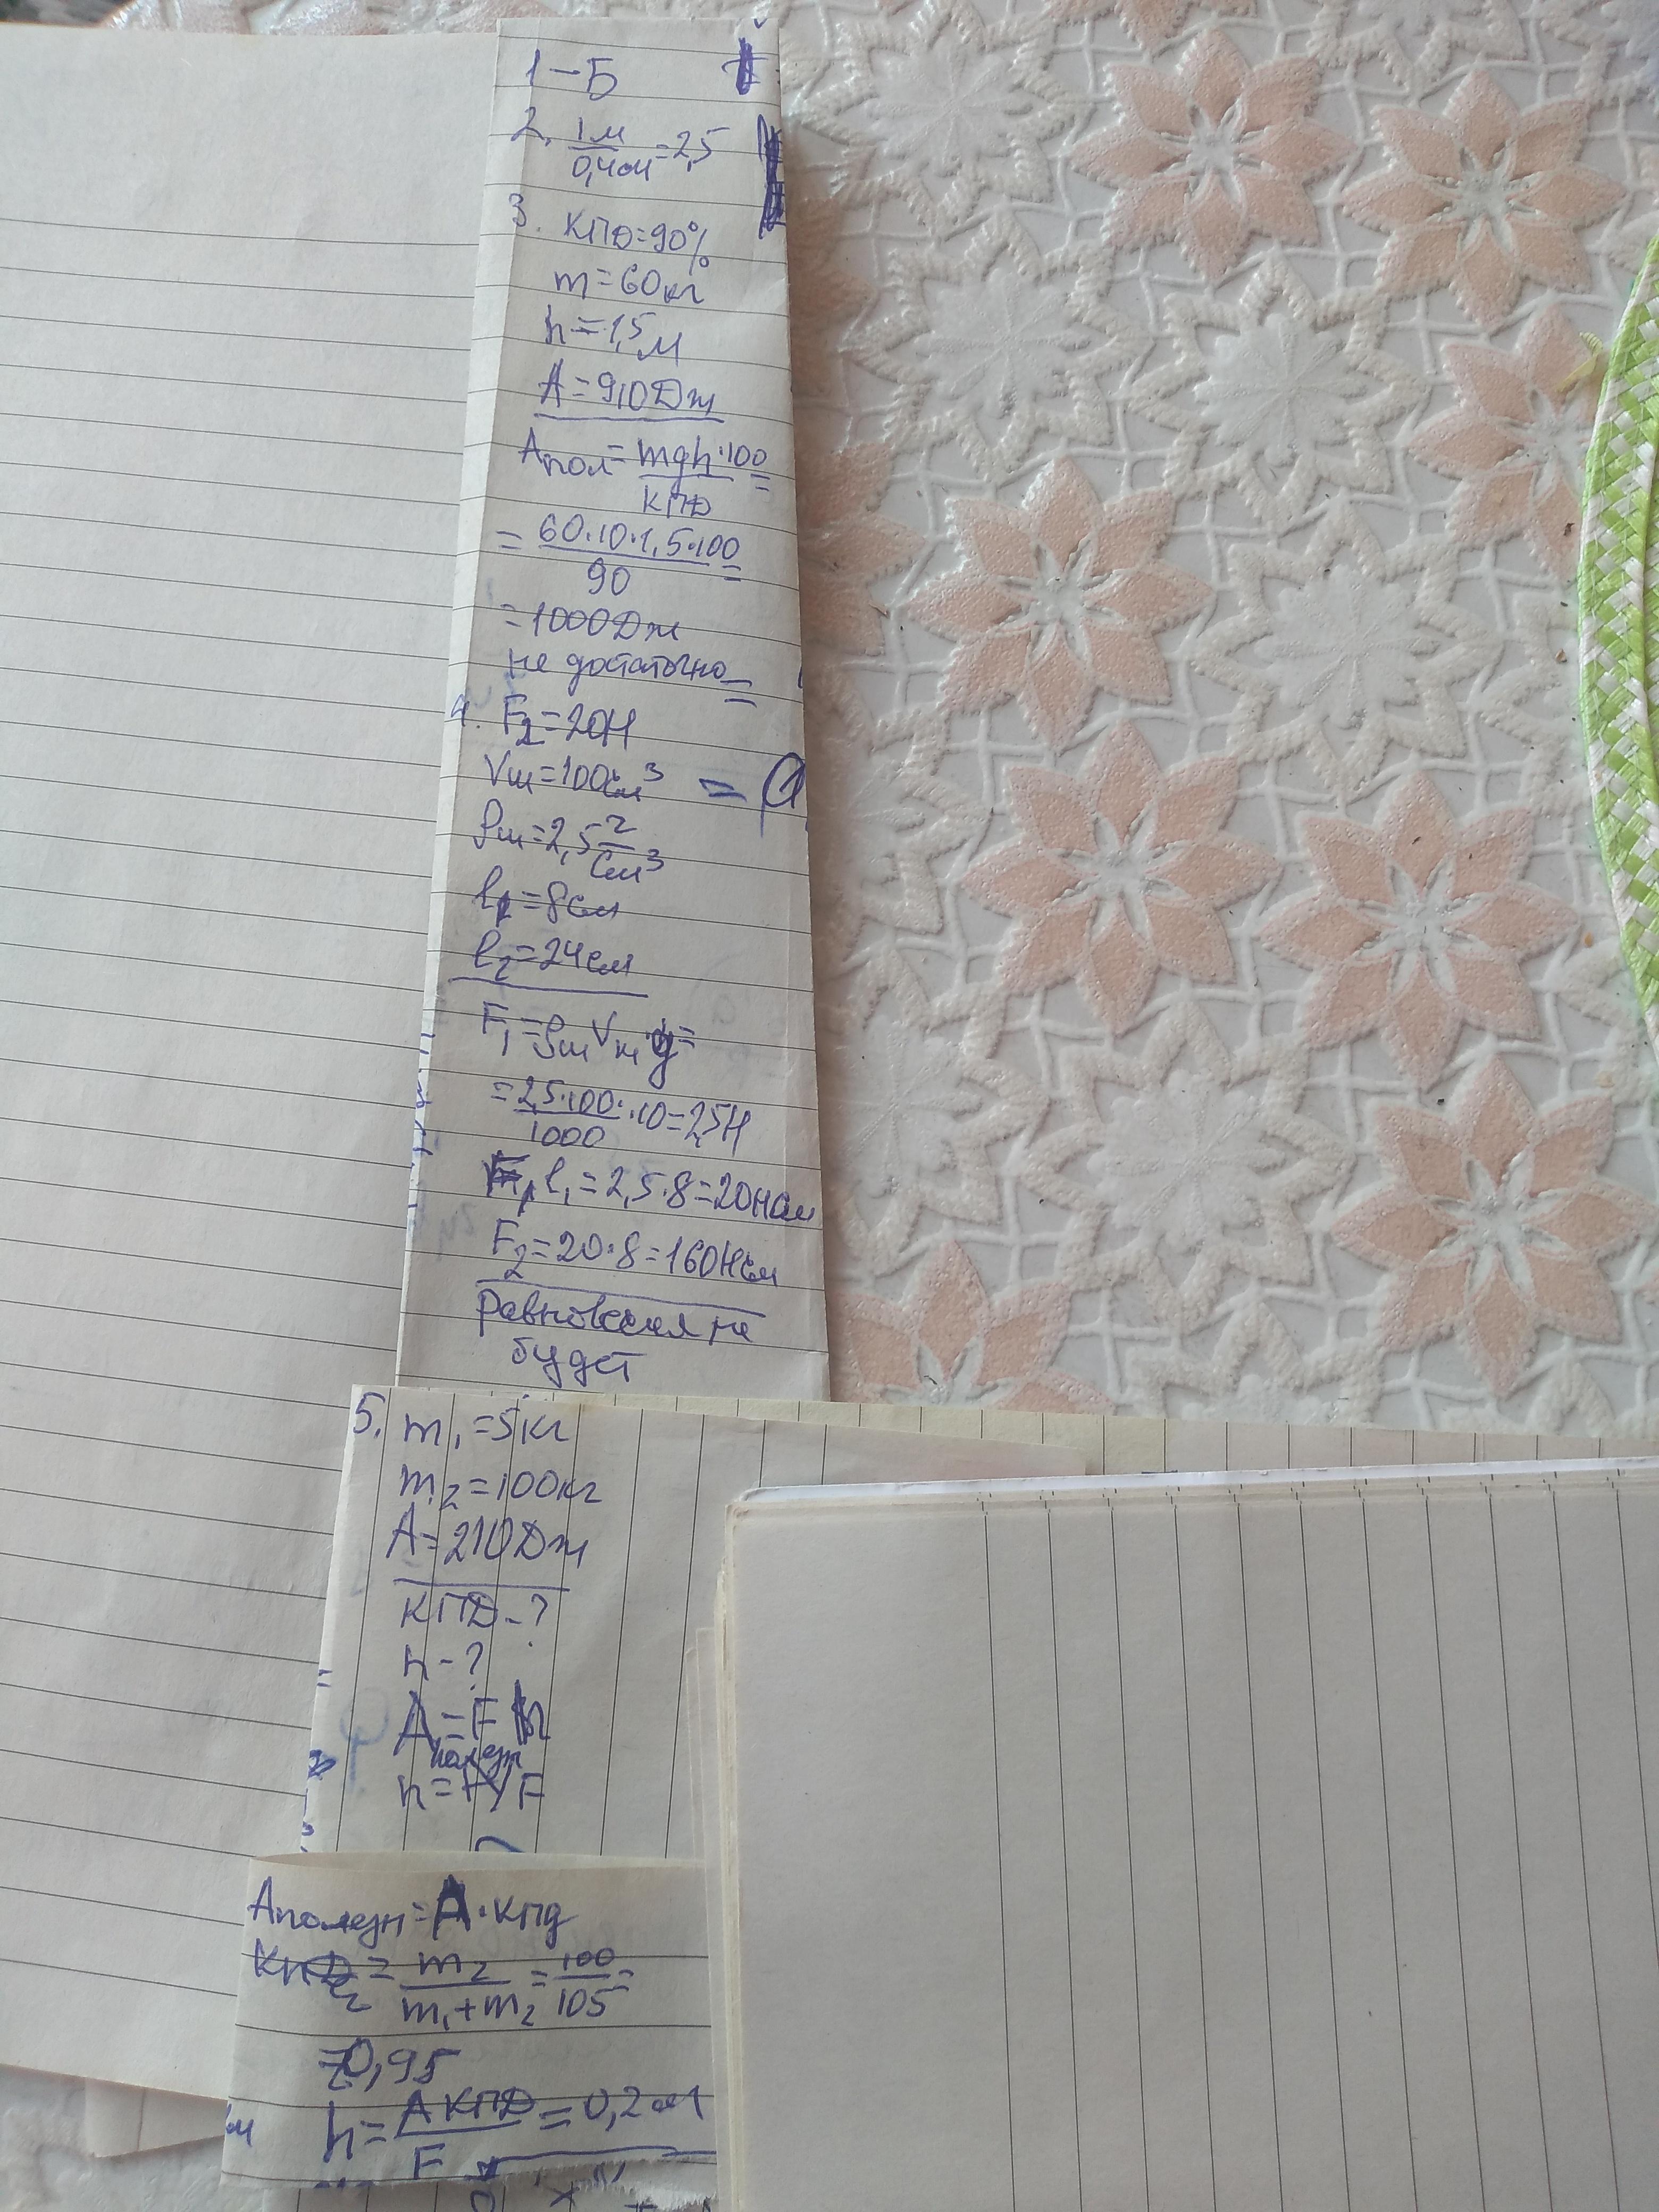 1-Б
2. 1м/0,4м=2,5
3. КПД=90%
m=60кг
h=1,5м
A=910Дж
Aпол=mgh·100/КПД=
=60·10·1,5·100/90=
=1000Дж
не достаточно=
4. F₂=20Н
Vш=100см³ =
ρш=2,5г/см³
l₁=8см
l₂=24см
F₁=ρшVшg=
=2,5·100/1000·10=2,5Н
F₁l₁=2,5·8=20Нсм
F₂=20·8=160Нсм
Равновесия не
будет
5. m₁=5кг
m₂=100кг
A=210Дж
КПД-?
h-?
A=Fh
полезн
h=A/F
Aполезн=A·кпд
КПД=m₂/m₁+m₂=100/105=
=0,95
h=AКПД/F=0,2м